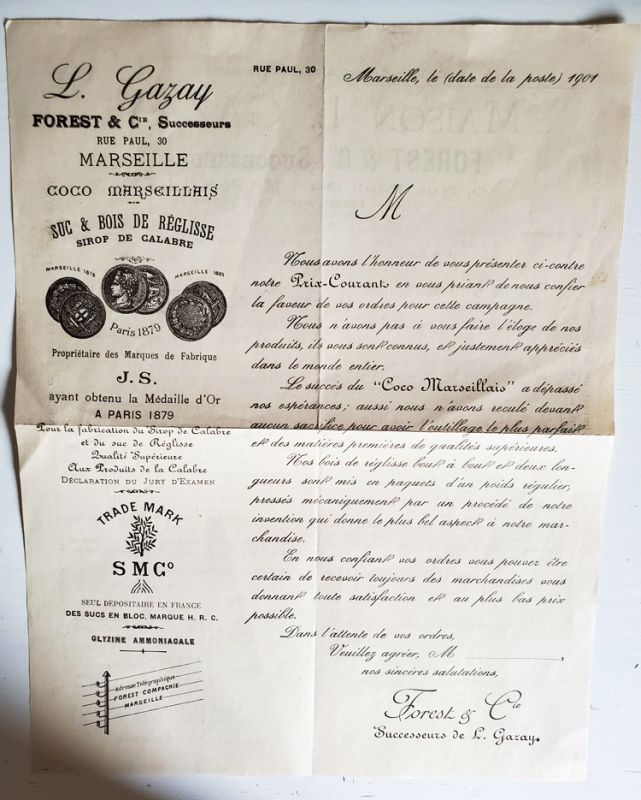 L. Gazay
FOREST & CIE, Successeurs
RUE PAUL, 30
MARSEILLE
COCO MARSEILLAIS
SUC & BOIS DE RÉGLISSE
SIROP DE CALABRE
MARSEILLE 1878
MARSEILLE 1861
Paris 1879
Propriétaire des Marques de Fabrique
J. S.
ayant obtenu la Médaille d'Or
A PARIS 1879
Pour la fabrication du Sirop de Calabre
et du suc de Réglisse
Qualité Supérieure
Aux Produits de la Calabre
DÉCLARATION DU JURY D'EXAMEN
TRADE MARK
SMCo
SEUL DÉPOSITAIRE EN FRANCE
DES SUCS EN BLOC, MARQUE H. R. C.
GLYZINE AMMONIACALE
Adresse Télégraphique
FOREST COMPAGNIE
MARSEILLE
RUE PAUL, 30
Marseille, le (date de la poste) 1901
M
Nous avons l'honneur de vous présenter ci-contre
notre Prix-Courant en vous priant de nous confier
la faveur de vos ordres pour cette campagne.
Nous n'avons pas à vous faire l'éloge de nos
produits, ils vous sont connus, et justement appréciés
dans le monde entier.
Le succès du "Coco Marseillais" a dépassé
nos espérances; aussi nous n'avons reculé devant
aucun sacrifice pour avoir l'outillage le plus parfait
et des matières premières de qualités supérieures.
Nos bois de réglisse bout à bout et deux lon-
gueurs sont mis en paquets d'un poids régulier,
pressés mécaniquement par un procédé de notre
invention qui donne le plus bel aspect à notre mar-
chandise.
En nous confiant vos ordres vous pouvez être
certain de recevoir toujours des marchandises vous
donnant toute satisfaction et au plus bas prix
possible.
Dans l'attente de vos ordres,
Veuillez agréer, M ,
nos sincères salutations,
Forest & Cie
Successeurs de L. Gazay.